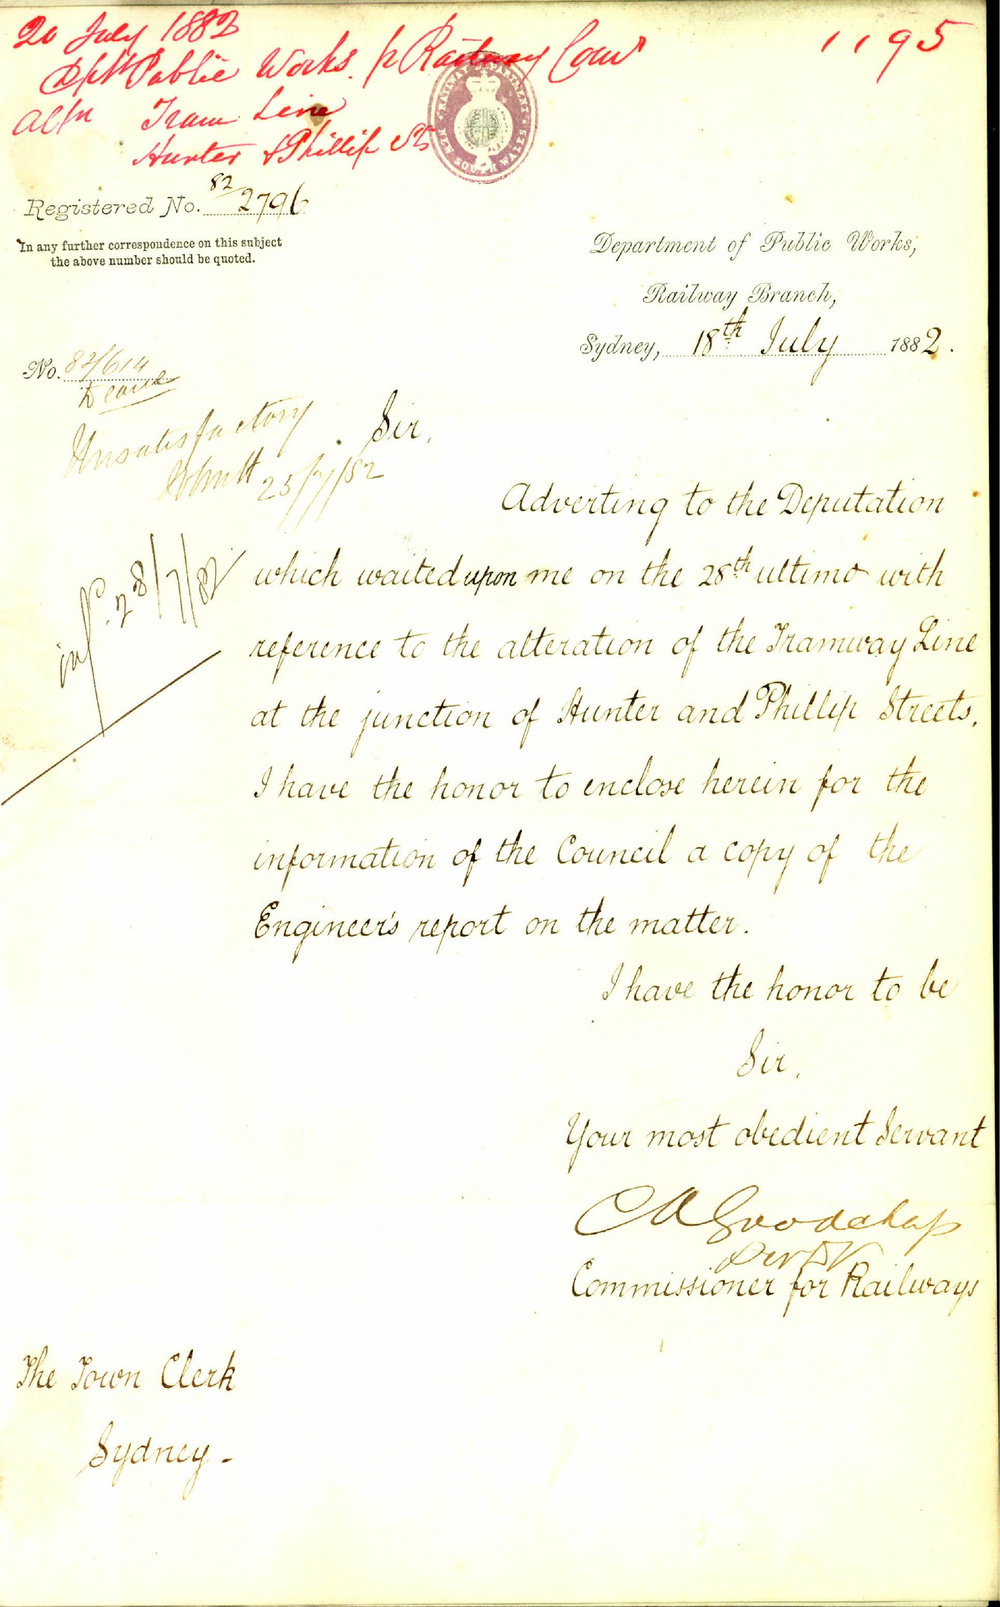 20 July 1882
Dept Public Works p Railway Com
1195
Altn Tram Line
Hunter & Phillip St
RAILWAY DEPARTMENT
NEW SOUTH WALES
Registered No. 82/2796
In any further correspondence on this subject
the above number should be quoted.
Department of Public Works,
Railway Branch,
Sydney, 18th July 1882.
No. 82/614
Unsatisfactory
25/7/82
Sir,
Adverting to the Deputation
which waited upon me on the 28th ultimo with
reference to the alteration of the Tramway Line
at the junction of Hunter and Phillip Streets,
I have the honor to enclose herein for the
information of the Council a copy of the
Engineer's report on the matter.
inf. 28/7/82
I have the honor to be
Sir,
Your most obedient Servant
C A Goodchap
Commissioner for Railways
The Town Clerk
Sydney -